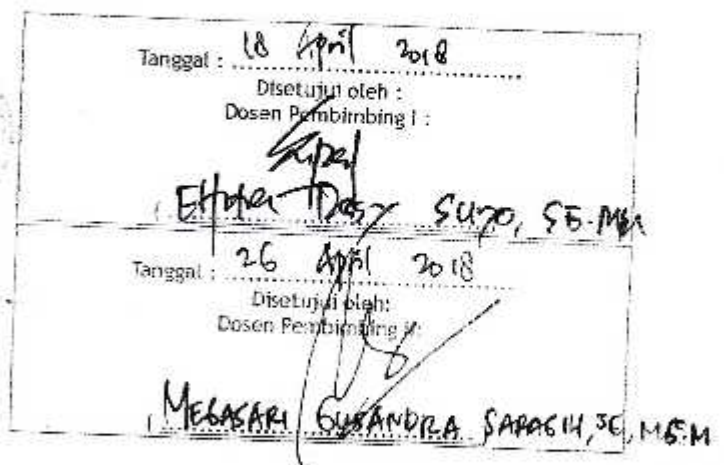 Tanggal : 18 April 2018
Disetujui oleh :
Dosen Pembimbing I :
SUYO, SE.MM
Tanggal : 26 April 2018
Disetujui oleh:
Dosen Pembimbing II:
MEGASARI GUSANDRA SARAGIH, SE, M.S.M